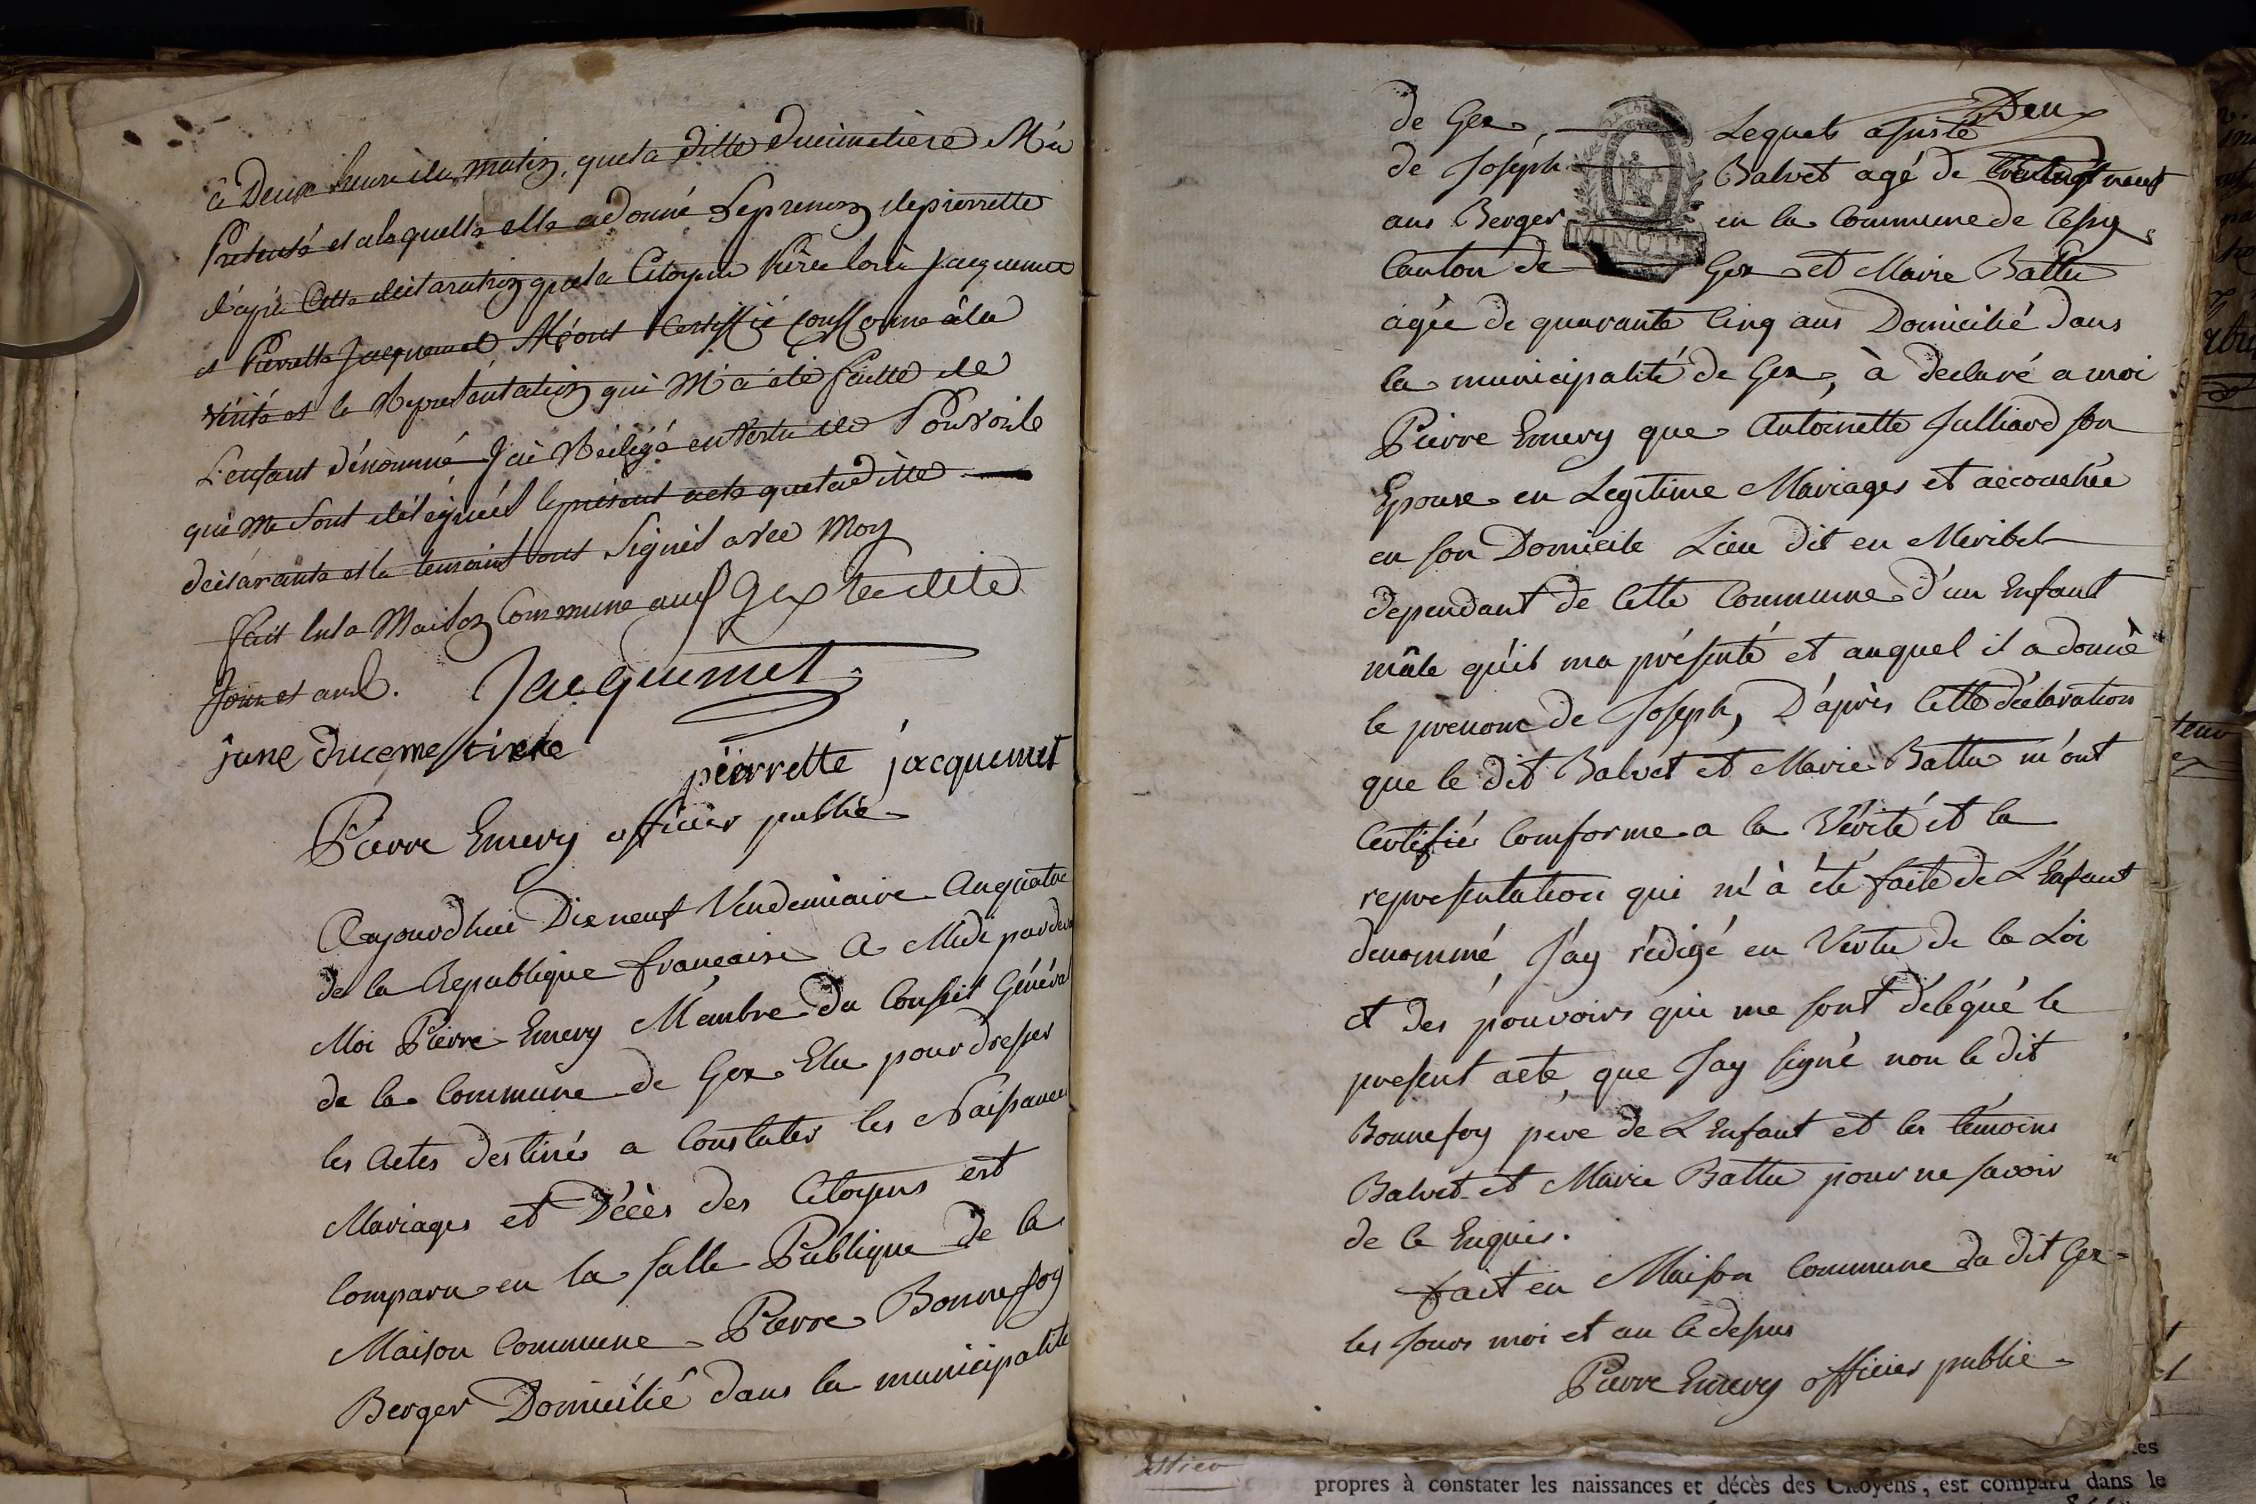 à Deux heure du matin, quela ditte ducimetière M'a
Présenté et alaquelle elle adonné Leprenom depierrette
d'apré Cette déclaration quela Citoyen Pière loüi Jacquemet
et Pierrette Jacquemet M'ont Certiffié Conforme àla
vérité et la Représentation qui M'a été faitte de
L'enfant dénommé J'ai Rédigé envertu des Pouvoirs
qui me sont délégués leprésent acte quela ditte
déclarante et les temoins ont Signés avec Moy
fait enla Maison Commune au Gex lesdits
Jour et and. Jacquemet
june ducemestierre
pierrette jacquemet
Pierre Emery officier public
Aujourdhui Dix neuf Vendemiaire an quatre
de la Republique francaise a Midi pardevant
Moi Pierre Emery Membre du Conseil Général
de la Commune de Gex Elu pour dresser
les Actes destinés a Constater les Naissances
Mariages et Décès des Citoyens est
Comparu en la salle Publique de la
Maison Commune Pierre Bonnefoy
Berger Domicilié dans la municipalité
Deux
de Gex, Lequel assisté
de Joseph Balvet agé de neuf
ans Berger en la Commune de Cessy
MINUTE
Canton de Gex et Marie Battu
agée de quarante Cinq ans Domicilié dans
la municipalité de Gex, à declaré a moi
Pierre Emery que Antoinette Julliard son
Epouse en Legitime Mariages et accouchée
en son Domicile Lieu dit en Meribel
dependant de Cette Commune d'un Enfant
mâle qu'il ma présenté et auquel il a donné
le prenom de Joseph, D'après Cette déclaration
que le dit Balvet et Marie Battu m'ont
Certifié Comforme a la Vérité et la
representation qui m'à été faite de L'Enfant
denommé, J'ay rédigé en Vertu de la Loi
et des pouvoirs qui me sont délégué le
present acte, que Jay signé non le dit
Bonnefoy père de L'Enfant et les témoins
Balvet et Marie Battu pour ne savoir
de ce Enquis.
fait en Maison Commune du dit Gex
les Jours moi et an Cedessus
Pierre Emery officier public
propres à constater les naissances et décès des Citoyens, est comparu dans le